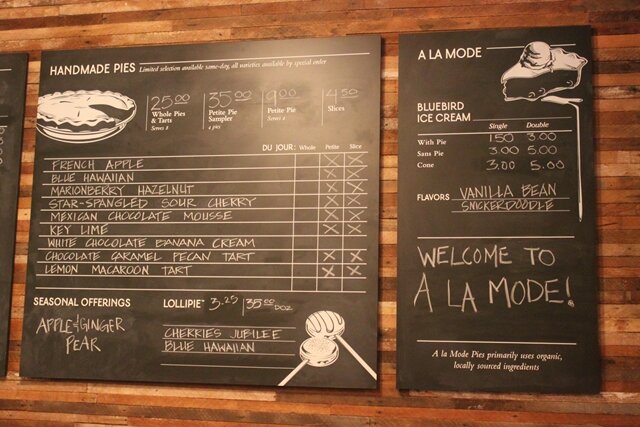 HANDMADE PIES Limited selection available same-day, all varieties available by special order
25.00 35.00 9.00 4.50
Whole Pies & Tarts Serves 8
Petite Pie Sampler 4 pies
Petite Pie Serves 2
Slices
DU JOUR: Whole Petite Slice
FRENCH APPLE X X
BLUE HAWAIIAN X X
MARIONBERRY HAZELNUT X X
STAR-SPANGLED SOUR CHERRY X X
MEXICAN CHOCOLATE MOUSSE X X
KEY LIME X X
WHITE CHOCOLATE BANANA CREAM
CHOCOLATE CARAMEL PECAN TART X X
LEMON MACAROON TART X X
SEASONAL OFFERINGS
APPLE & GINGER
PEAR
LOLLIPIE™ 3.25 | 35.00 DOZ
CHERRIES JUBILEE
BLUE HAWAIIAN
A LA MODE
BLUEBIRD
ICE CREAM Single Double
With Pie 1.50 3.00
Sans Pie 3.00 5.00
Cone 3.00 5.00
FLAVORS VANILLA BEAN
SNICKERDOODLE
WELCOME TO
A LA MODE!
A la Mode Pies primarily uses organic,
locally sourced ingredients